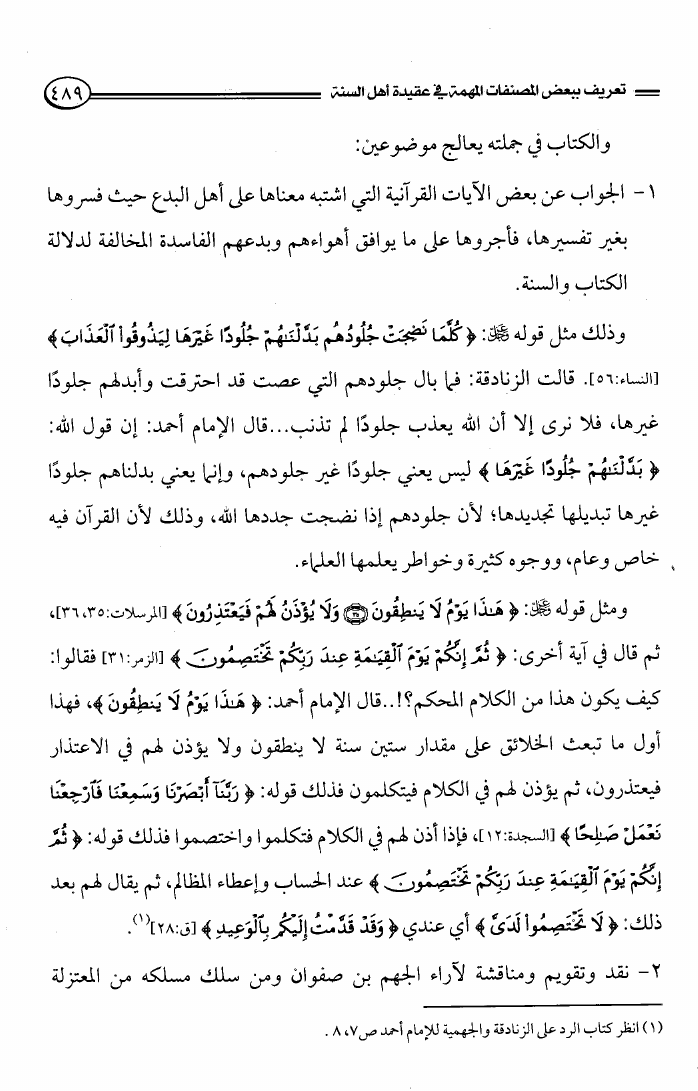 تعريف ببعض المصنفات المهمة في عقيدة أهل السنة ٤٨٩
والكتاب في جملته يعالج موضوعين:
١- الجواب عن بعض الآيات القرآنية التي اشتبه معناها على أهل البدع حيث فسروها
بغير تفسيرها، فأجروها على ما يوافق أهواءهم وبدعهم الفاسدة المخالفة لدلالة
الكتاب والسنة.
وذلك مثل قوله ﷻ: ﴿ كُلَّمَا نَضِجَتْ جُلُودُهُم بَدَّلْنَٰهُمْ جُلُودًا غَيْرَهَا لِيَذُوقُوا۟ ٱلْعَذَابَ ﴾
[النساء:٥٦]. قالت الزنادقة: فما بال جلودهم التي عصت قد احترقت وأبدلهم جلودًا
غيرها، فلا نرى إلا أن الله يعذب جلودًا لم تذنب...قال الإمام أحمد: إن قول الله:
﴿ بَدَّلْنَٰهُمْ جُلُودًا غَيْرَهَا ﴾ ليس يعني جلودًا غير جلودهم، وإنما يعني بدلناهم جلودًا
غيرها تبديلها تجديدها؛ لأن جلودهم إذا نضجت جددها الله، وذلك لأن القرآن فيه
خاص وعام، ووجوه كثيرة وخواطر يعلمها العلماء.
ومثل قوله ﷻ: ﴿ هَٰذَا يَوْمُ لَا يَنطِقُونَ ۝٣٥ وَلَا يُؤْذَنُ لَهُمْ فَيَعْتَذِرُونَ ﴾ [المرسلات:٣٥، ٣٦]،
ثم قال في آية أخرى: ﴿ ثُمَّ إِنَّكُمْ يَوْمَ ٱلْقِيَٰمَةِ عِندَ رَبِّكُمْ تَخْتَصِمُونَ ﴾ [الزمر:٣١] فقالوا:
كيف يكون هذا من الكلام المحكم؟!..قال الإمام أحمد: ﴿ هَٰذَا يَوْمُ لَا يَنطِقُونَ ﴾، فهذا
أول ما تبعث الخلائق على مقدار ستين سنة لا ينطقون ولا يؤذن لهم في الاعتذار
فيعتذرون، ثم يؤذن لهم في الكلام فيتكلمون فذلك قوله: ﴿ رَبَّنَآ أَبْصَرْنَا وَسَمِعْنَا فَٱرْجِعْنَا
نَعْمَلْ صَٰلِحًا ﴾ [السجدة:١٢]، فإذا أذن لهم في الكلام فتكلموا واختصموا فذلك قوله: ﴿ ثُمَّ
إِنَّكُمْ يَوْمَ ٱلْقِيَٰمَةِ عِندَ رَبِّكُمْ تَخْتَصِمُونَ ﴾ عند الحساب وإعطاء المظالم، ثم يقال لهم بعد
ذلك: ﴿ لَا تَخْتَصِمُوا۟ لَدَىَّ ﴾ أي عندي ﴿ وَقَدْ قَدَّمْتُ إِلَيْكُم بِٱلْوَعِيدِ ﴾ [ق:٢٨](١).
٢- نقد وتقويم ومناقشة لآراء الجهم بن صفوان ومن سلك مسلكه من المعتزلة
(١) انظر كتاب الرد على الزنادقة والجهمية للإمام أحمد ص٧، ٨ .